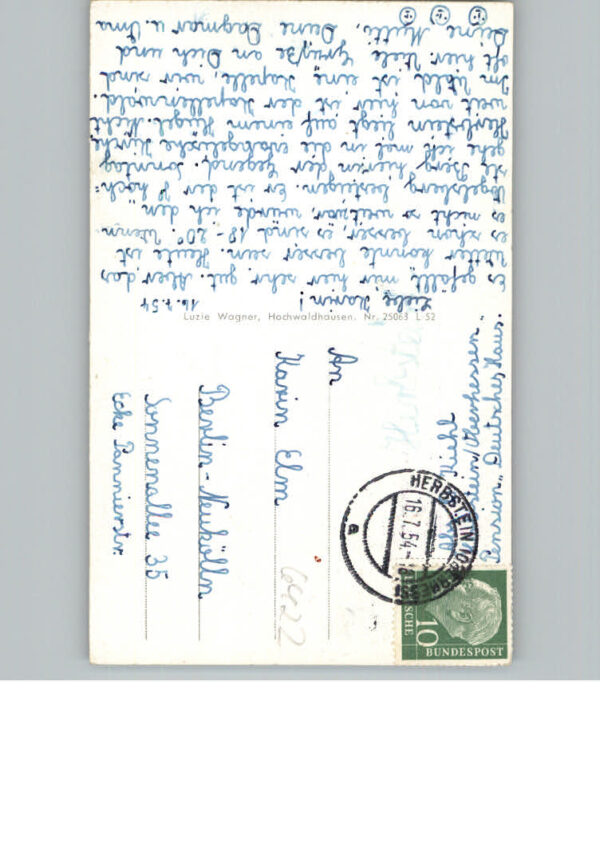 Liebe Karin! 16.7.54
Es gefällt mir hier sehr gut. Aber das
Wetter könnte besser sein. Heute ist
es schon besser, es sind 18-20°. Wenn
es nicht so weit wär, würde ich den
Vogelsberg besteigen. Er ist der höch=
ste Berg hier in der Gegend. Sonntag
gehe ich mal in die evangelische Kirche
Herbstein liegt auf einem Hügel. Nicht
weit von hier ist der Kapellenwald.
Im Wald ist eine Kapelle, wir sind
oft hier. Viele Grüße an Dich und
Deine Mutti, Deine Dagmar u. Oma
Luzie Wagner, Hochwaldhausen. Nr. 25063 L 52
An
Karin Elm
Berlin-Neukölln
Sonnenallee 35
Ecke Pannierstr.
Herbstein/Oberhessen
Pension "Deutsches Haus."
HERBSTEIN
16.7.54-18
a
10
BUNDESPOST